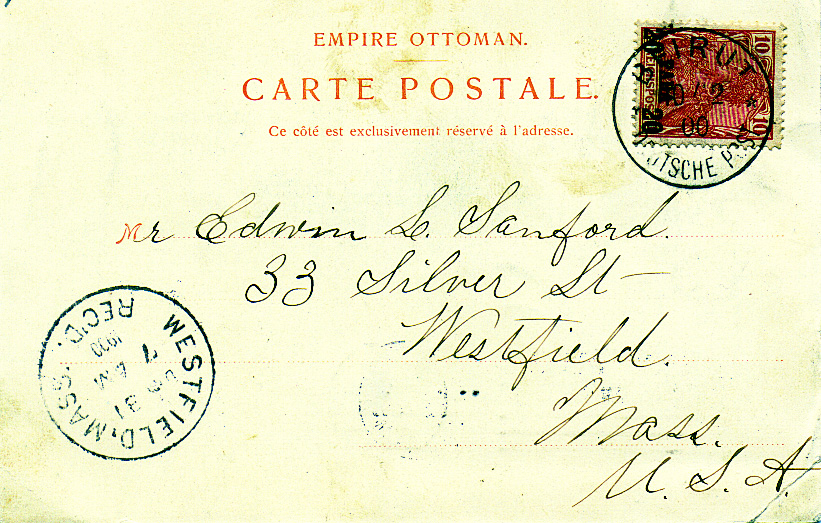 EMPIRE OTTOMAN.
CARTE POSTALE.
Ce côté est exclusivement réservé à l'adresse.
10 10
REICHSPOST
DEUTSCHE POST
00
Mr Edwin L. Sanford.
33 Silver St
Westfield.
Mass.
U. S. A.
WESTFIELD, MASS.
REC'D.
1900
7
31